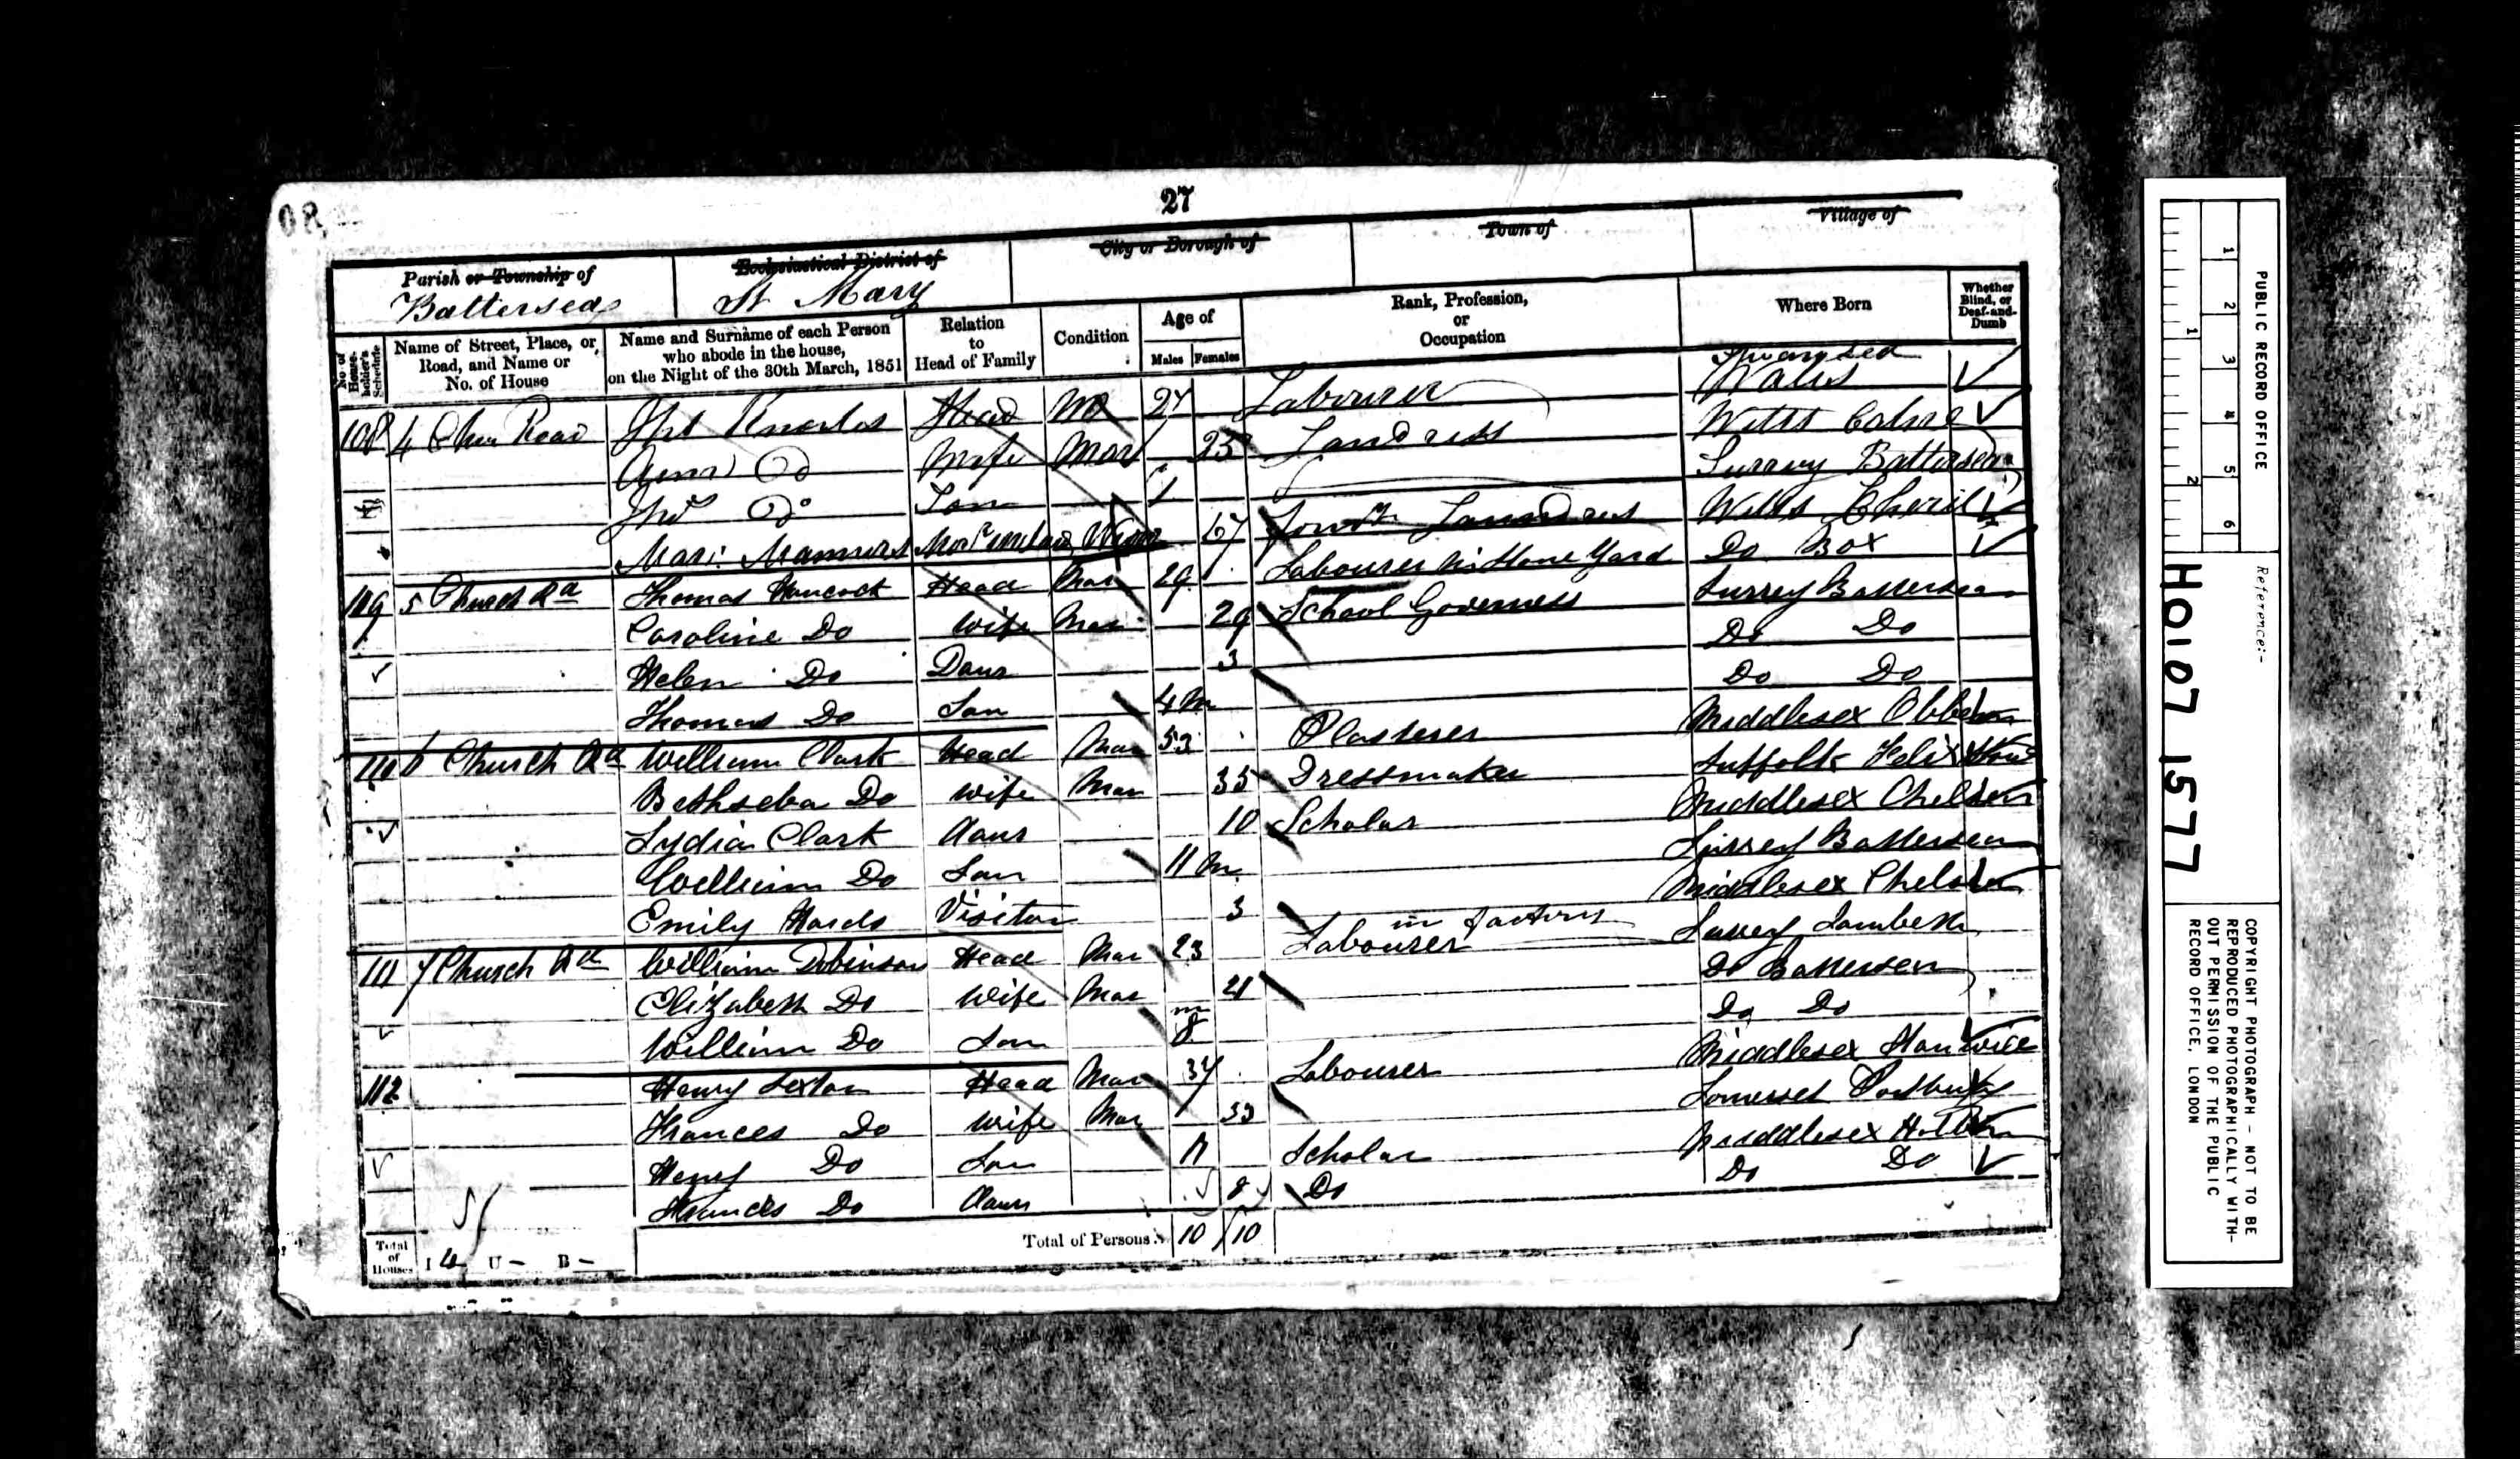 27
Parish or Township of
Battersea
Ecclesiastical District of
St Mary
City or Borough of
Town of
Village of
No. of House-holder's Schedule
Name of Street, Place, or Road, and Name or No. of House
Name and Surname of each Person who abode in the house, on the Night of the 30th March, 1851
Relation to Head of Family
Condition
Age of
Males Females
Rank, Profession, or Occupation
Where Born
Whether Blind, or Deaf-and-Dumb
108 4 Road Head 27 Labourer Wales
Ann Do Wife Mar 25 Wilts Calne
Do Son 1 Surrey Battersea
67 Wilts
109 5 Church Rd Thomas Hancock Head Mar 29 Labourer in Stone Yard Do Box
Caroline Do Wife Mar 29 School Governess Surrey Battersea
Helen Do Daur 3 Do Do
Thomas Do Son 4 m Do Do
110 6 Church Rd William Clark Head Mar Plasterer Middlesex
Bethseba Do Wife Mar 35 Dressmaker Suffolk Felixstow
Lydia Clark Daur 10 Scholar Middlesex Chelsea
William Do Son 11 m Surrey Battersea
Emily Visitor 3 Middlesex Chelsea
111 7 Church Rd William Dobinson Head Mar 23 Labourer in factory Surrey Lambeth
Elizabeth Do Wife Mar 21 Do Battersea
William Do Son m 8 Do Do
112 Henry Sexton Head Mar 37 Labourer Middlesex
Frances Do Wife Mar Somerset Portbury
Henry Do Son Scholar Middlesex
Frances Do Daur 8 Do Do Do
Total of Houses I 4 U - B -
Total of Persons 10 10
PUBLIC RECORD OFFICE
1 2 3 4 5 6
1 2
Reference:-
HO107 1577
COPYRIGHT PHOTOGRAPH - NOT TO BE
REPRODUCED PHOTOGRAPHICALLY WITH-
OUT PERMISSION OF THE PUBLIC
RECORD OFFICE, LONDON